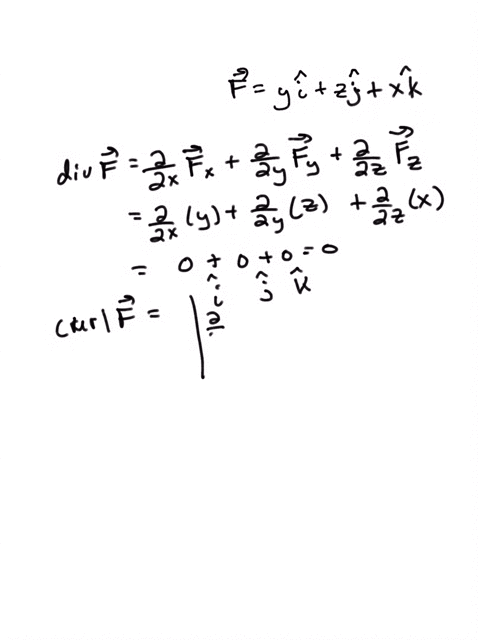 F⃗ = y î + z ĵ + x k̂
div F⃗ = ∂/∂x F⃗x + ∂/∂y F⃗y + ∂/∂z F⃗z
= ∂/∂x (y) + ∂/∂y (z) + ∂/∂z (x)
= 0 + 0 + 0 = 0
î ĵ k̂
curl F⃗ = | ∂